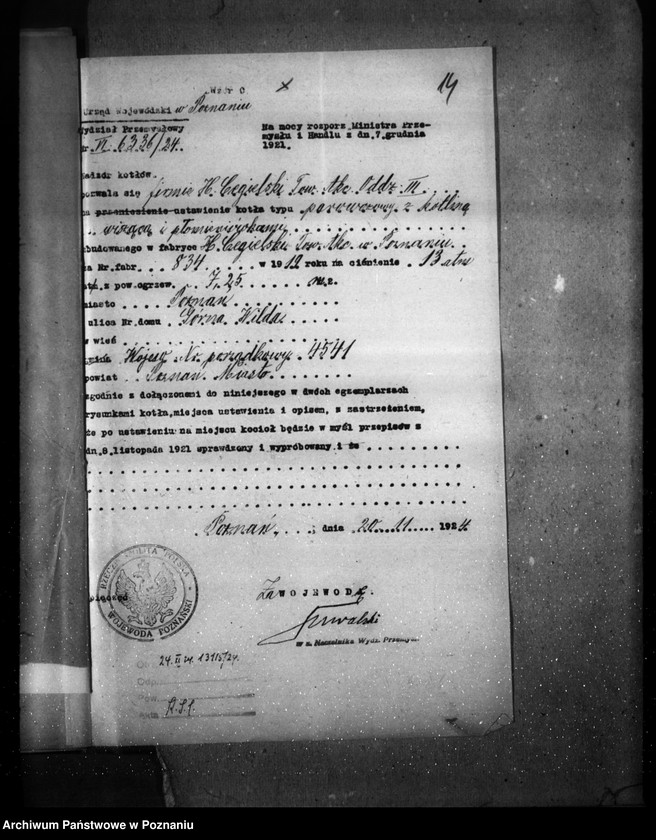 Wzór C
14
Urząd Wojewódzki w Poznaniu
Wydział Przemysłowy
Nr VI 6336/24.
Na mocy rozporz. Ministra Prze-
mysłu i Handlu z dn. 7. grudnia
1921.
Nadzór kotłów.
pozwala się firmie H. Cegielski Tow. Akc. Oddz. III.
na przeniesienie-ustawienie kotła typu parowozowy z kotliną
wiszącą i płomieniówkami
zbudowanego w fabryce H. Cegielski Tow. Akc. w Poznaniu
za Nr. fabr. 834 w 1912 roku na ciśnienie 13 atm
z pow. ogrzew. 7.25 m.2.
miasto Poznań
ulica Nr. domu Górna Wilda
wieś
gmina Nr. porządkowy 4541
powiat Poznań Miasto
zgodnie z dołączonemi do niniejszego w dwóch egzemplarzach
rysunkami kotła, miejsca ustawienia i opisem, z zastrzeżeniem,
że po ustawieniu na miejscu kocioł będzie w myśl przepisów z
dn. 8. listopada 1921 sprawdzony i wypróbowany i że
Poznań, dnia 20. 11. 1924
RZECZPOSPOLITA POLSKA
WOJEWODA POZNAŃSKI
pieczęć
Za WOJEWODĘ.
w z. Naczelnika Wydz. Przemysł.
24. II
Archiwum Państwowe w Poznaniu